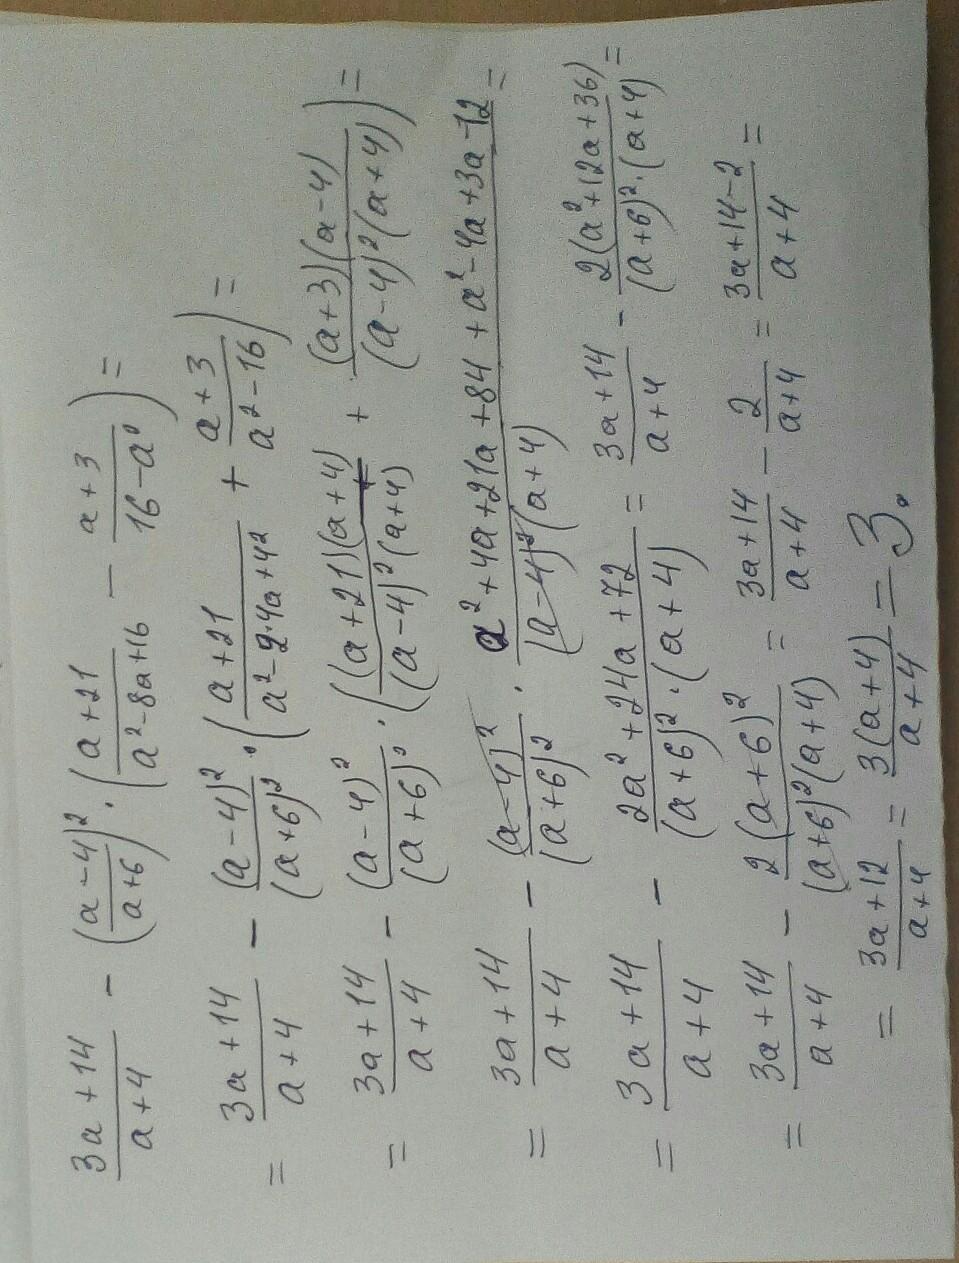 (3a+14)/(a+4) − ((a−4)/(a+6))² · ((a+21)/(a²−8a+16) − (a+3)/(16−a²)) =
= (3a+14)/(a+4) − (a−4)²/(a+6)² · ((a+21)/(a²−2·4a+4²) + (a+3)/(a²−16)) =
= (3a+14)/(a+4) − (a−4)²/(a+6)² · ((a+21)(a+4)/(a−4)²(a+4) + (a+3)(a−4)/(a−4)²(a+4)) =
= (3a+14)/(a+4) − (a−4)²/(a+6)² · (a²+4a+21a+84+a²−4a+3a−12)/(a−4)²(a+4) =
= (3a+14)/(a+4) − (2a²+24a+72)/(a+6)²·(a+4) = (3a+14)/(a+4) − 2(a²+12a+36)/(a+6)²·(a+4) =
= (3a+14)/(a+4) − 2(a+6)²/(a+6)²(a+4) = (3a+14)/(a+4) − 2/(a+4) = (3a+14−2)/(a+4) =
= (3a+12)/(a+4) = 3(a+4)/(a+4) = 3.